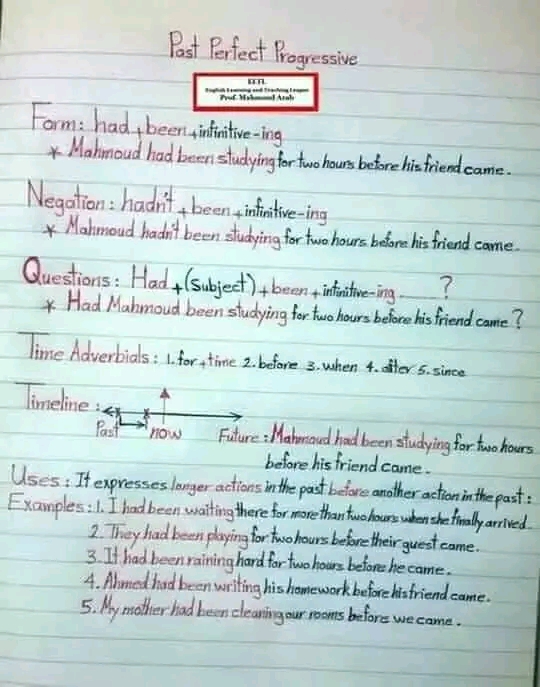 Past Perfect Progressive
EETL
English Learning and Teaching League
Prof. Mahmoud Arab
Form: had + been + infinitive-ing
* Mahmoud had been studying for two hours before his friend came.
Negation: hadn't + been + infinitive-ing
* Mahmoud hadn't been studying for two hours before his friend came.
Questions: Had + (subject) + been + infinitive-ing ____?
* Had Mahmoud been studying for two hours before his friend came?
Time Adverbials: 1. for + time 2. before 3. when 4. after 5. since
Timeline:
Past now Future: Mahmoud had been studying for two hours
before his friend came.
Uses: It expresses longer actions in the past before another action in the past:
Examples: 1. I had been waiting there for more than two hours when she finally arrived.
2. They had been playing for two hours before their guest came.
3. It had been raining hard for two hours before he came.
4. Ahmed had been writing his homework before his friend came.
5. My mother had been cleaning our rooms before we came.